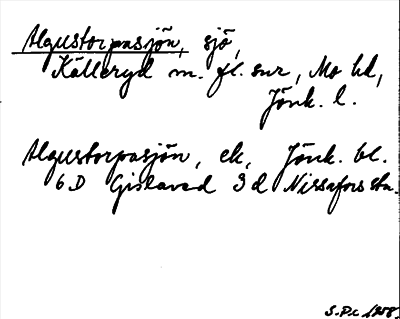 Algustorpasjön, sjö,
Källeryd m. fl. snr, Mo hd,
Jönk. l.
Algustorpasjön, ek, Jönk. bl.
6D Gislaved 3d Nissafors sta.
S.P.c 1958